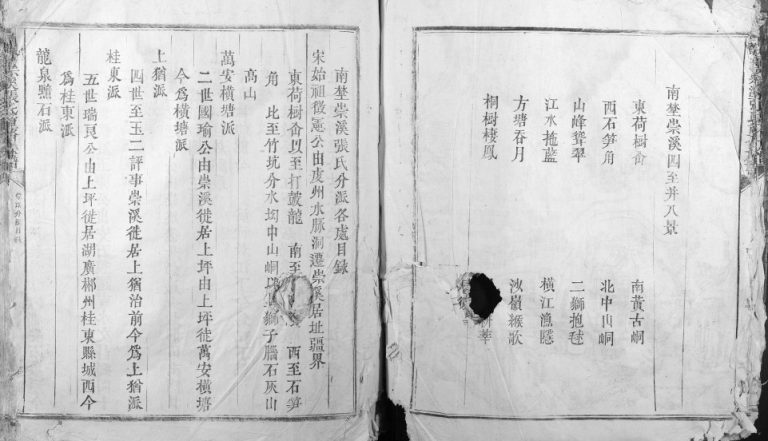 南埜崇溪四至并八景
東荷樹畬 南黃古峒
西石笋角 北中山峒
山峰聳翠 二獅抱毬
江水拖藍 橫江漁隱
方塘吞月 嶺樵歌
桐樹棲鳳
南埜崇溪張氏分派各處目錄
宋始祖徵冕公由虔州水脉洞遷崇溪居址疆界
東荷樹畬以至打鼓龍 南至 西至石笋
角 比至竹坑分水坳中山峒 獅子腦石灰山
高山
萬安橫塘派
二世國瑜公由崇溪徙居上坪由上坪徙萬安橫塘
今爲橫塘派
上猶派
四世至玉二評事崇溪徙居上猶治前今爲上猶派
桂東派
五世瑞良公由上坪徙居湖廣郴州桂東縣城西今
爲桂東派
龍泉黯石派